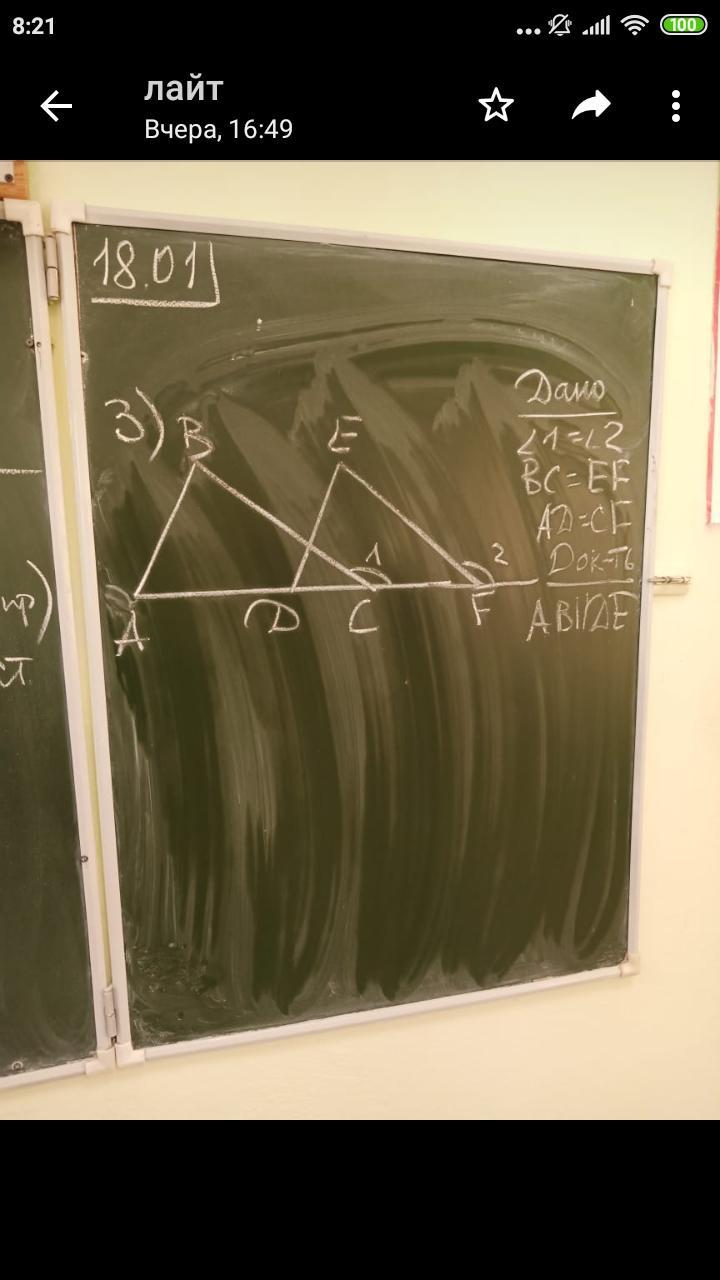 8:21
100
лайт
Вчера, 16:49
18.01
3)
B E
Дано
∠1=∠2
BC=EF
AD=CF
1 2
Док-ть
A D C F
AB||DE
пр)